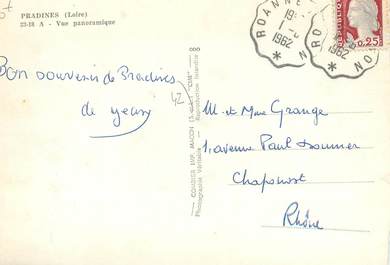 PRADINES (Loire)
23-18 A - Vue panoramique
Bon souvenir de Pradines
de
42
COMBIER IMP. MACON (S.-&-L.) "CIM"
Photographie Véritable - Reproduction interdite
ROANNE
1962
RO
1962
0,25
M. et Mme Grange
1, avenue Paul Doumer
Chaponost
Rhône